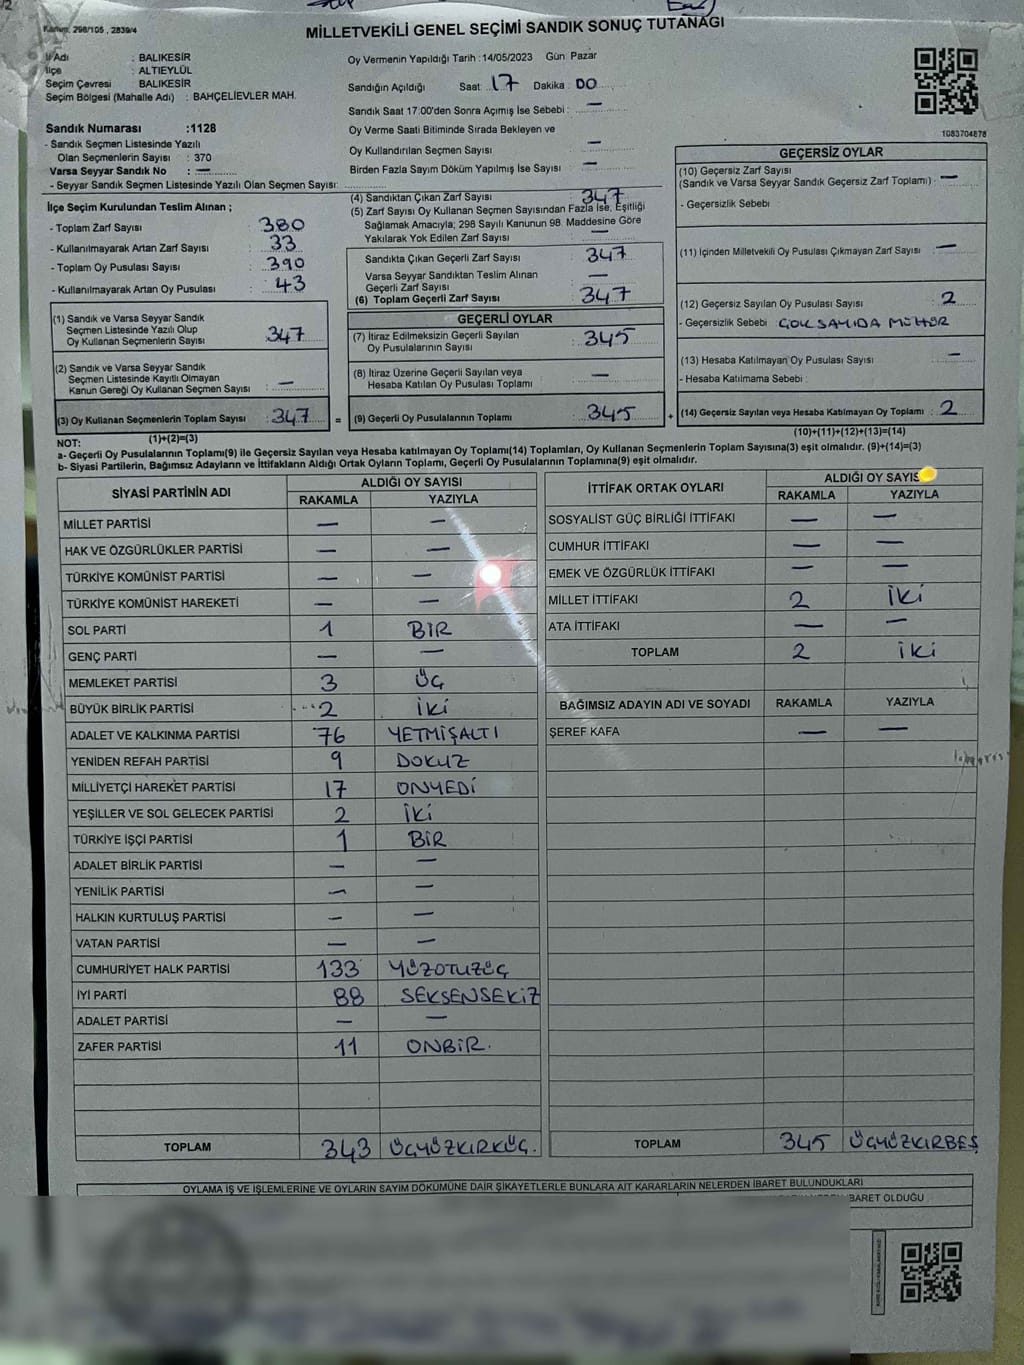 Kanun: 298/105, 2839/4
MİLLETVEKİLİ GENEL SEÇİMİ SANDIK SONUÇ TUTANAĞI
İl Adı : BALIKESİR
İlçe : ALTIEYLÜL
Seçim Çevresi : BALIKESİR
Seçim Bölgesi (Mahalle Adı) : BAHÇELİEVLER MAH.
Oy Vermenin Yapıldığı Tarih :14/05/2023 Gün Pazar
Sandığın Açıldığı Saat: 17 Dakika 00
Sandık Saat 17:00'den Sonra Açımış İse Sebebi : —
Oy Verme Saati Bitiminde Sırada Bekleyen ve
Oy Kullandırılan Seçmen Sayısı —
Birden Fazla Sayım Döküm Yapılmış İse Sayısı —
1083704878
Sandık Numarası :1128
- Sandık Seçmen Listesinde Yazılı
Olan Seçmenlerin Sayısı : 370
Varsa Seyyar Sandık No : —
- Seyyar Sandık Seçmen Listesinde Yazılı Olan Seçmen Sayısı:
İlçe Seçim Kurulundan Teslim Alınan ;
- Toplam Zarf Sayısı : 380
- Kullanılmayarak Artan Zarf Sayısı : 33
- Toplam Oy Pusulası Sayısı : 390
- Kullanılmayarak Artan Oy Pusulası : 43
(1) Sandık ve Varsa Seyyar Sandık
Seçmen Listesinde Yazılı Olup
Oy Kullanan Seçmenlerin Sayısı : 347
(2) Sandık ve Varsa Seyyar Sandık
Seçmen Listesinde Kayıtlı Olmayan
Kanun Gereği Oy Kullanan Seçmen Sayısı : —
(3) Oy Kullanan Seçmenlerin Toplam Sayısı : 347 =
(1)+(2)=(3)
(4) Sandıktan Çıkan Zarf Sayısı : 347
(5) Zarf Sayısı Oy Kullanan Seçmen Sayısından Fazla İse, Eşitliği
Sağlamak Amacıyla; 298 Sayılı Kanunun 98. Maddesine Göre
Yakılarak Yok Edilen Zarf Sayısı : —
Sandıkta Çıkan Geçerli Zarf Sayısı : 347
Varsa Seyyar Sandıktan Teslim Alınan
Geçerli Zarf Sayısı : —
(6) Toplam Geçerli Zarf Sayısı : 347
GEÇERLİ OYLAR
(7) İtiraz Edilmeksizin Geçerli Sayılan
Oy Pusulalarının Sayısı : 345
(8) İtiraz Üzerine Geçerli Sayılan veya
Hesaba Katılan Oy Pusulası Toplamı : —
(9) Geçerli Oy Pusulalarının Toplamı : 345 +
GEÇERSİZ OYLAR
(10) Geçersiz Zarf Sayısı
(Sandık ve Varsa Seyyar Sandık Geçersiz Zarf Toplamı) : —
- Geçersizlik Sebebi
(11) İçinden Milletvekili Oy Pusulası Çıkmayan Zarf Sayısı —
(12) Geçersiz Sayılan Oy Pusulası Sayısı : 2
- Geçersizlik Sebebi : ÇOK SAYIDA MÜHÜR
(13) Hesaba Katılmayan Oy Pusulası Sayısı : —
- Hesaba Katılmama Sebebi :
(14) Geçersiz Sayılan veya Hesaba Katılmayan Oy Toplamı : 2
(10)+(11)+(12)+(13)=(14)
NOT:
a- Geçerli Oy Pusulalarının Toplamı(9) ile Geçersiz Sayılan veya Hesaba katılmayan Oy Toplamı(14) Toplamları, Oy Kullanan Seçmenlerin Toplam Sayısına(3) eşit olmalıdır. (9)+(14)=(3)
b- Siyasi Partilerin, Bağımsız Adayların ve İttifakların Aldığı Ortak Oyların Toplamı, Geçerli Oy Pusulalarının Toplamına(9) eşit olmalıdır.
SİYASİ PARTİNİN ADI ALDIĞI OY SAYISI
RAKAMLA YAZIYLA
MİLLET PARTİSİ — —
HAK VE ÖZGÜRLÜKLER PARTİSİ — —
TÜRKİYE KOMÜNİST PARTİSİ — —
TÜRKİYE KOMÜNİST HAREKETİ — —
SOL PARTİ 1 BİR
GENÇ PARTİ — —
MEMLEKET PARTİSİ 3 ÜÇ
BÜYÜK BİRLİK PARTİSİ 2 İKİ
ADALET VE KALKINMA PARTİSİ 76 YETMİŞALTI
YENİDEN REFAH PARTİSİ 9 DOKUZ
MİLLİYETÇİ HAREKET PARTİSİ 17 ONYEDİ
YEŞİLLER VE SOL GELECEK PARTİSİ 2 İKİ
TÜRKİYE İŞÇİ PARTİSİ 1 BİR
ADALET BİRLİK PARTİSİ — —
YENİLİK PARTİSİ — —
HALKIN KURTULUŞ PARTİSİ — —
VATAN PARTİSİ — —
CUMHURİYET HALK PARTİSİ 133 YÜZOTUZÜÇ
İYİ PARTİ 88 SEKSENSEKİZ
ADALET PARTİSİ — —
ZAFER PARTİSİ 11 ONBİR.
TOPLAM 343 ÜÇYÜZKIRKÜÇ.
İTTİFAK ORTAK OYLARI ALDIĞI OY SAYIS
RAKAMLA YAZIYLA
SOSYALİST GÜÇ BİRLİĞİ İTTİFAKI — —
CUMHUR İTTİFAKI — —
EMEK VE ÖZGÜRLÜK İTTİFAKI — —
MİLLET İTTİFAKI 2 İKİ
ATA İTTİFAKI — —
TOPLAM 2 İKİ
BAĞIMSIZ ADAYIN ADI VE SOYADI RAKAMLA YAZIYLA
ŞEREF KAFA — —
TOPLAM 345 ÜÇYÜZKIRBEŞ
OYLAMA İŞ VE İŞLEMLERİNE VE OYLARIN SAYIM DÖKÜMÜNE DAİR ŞİKAYETLERLE BUNLARA AİT KARARLARIN NELERDEN İBARET BULUNDUKLARI
BARET OLDUĞU